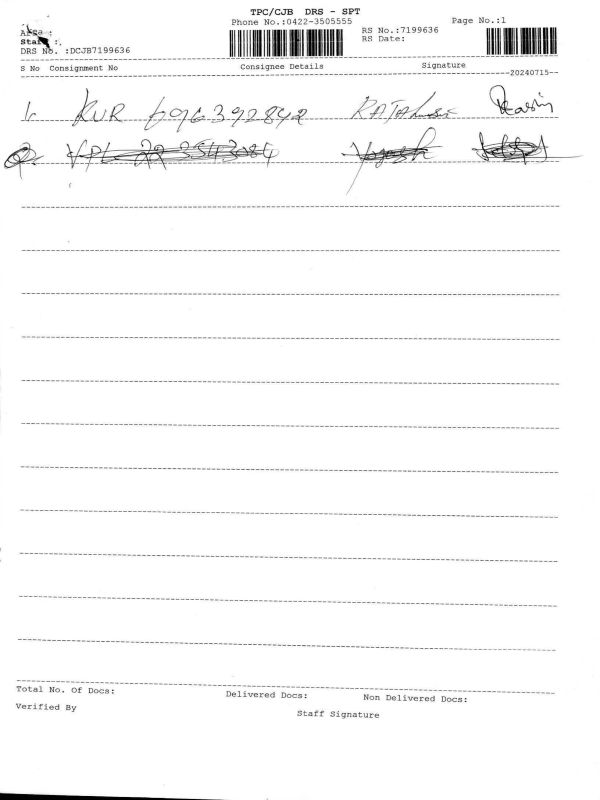 TPC/CJB DRS - SPT
Phone No.:0422-3505555 Page No.:1
Area :
Staff :
RS No.:7199636
RS Date:
DRS No. :DCJB7199636
S No Consignment No Consignee Details Signature
--20240715--
1. KUR 696392842
2. VPL 22 3543084 Yogesh
Total No. Of Docs: Delivered Docs: Non Delivered Docs:
Verified By Staff Signature